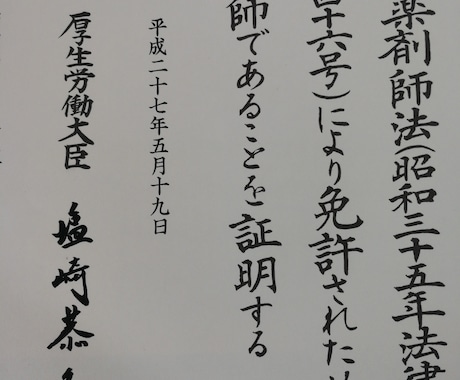 薬剤師法(昭和三十五年法律
百四十六号)により免許された
師であることを証明する
平成二十七年五月十九日
厚生労働大臣 塩崎恭